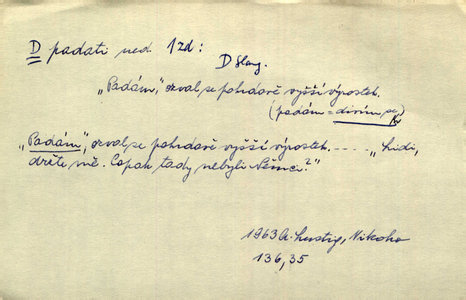 D padati ned. 1zd:
D slang.
„Padám," ozval se pohrdavě vyšší výrostek.
(padám = divím se)
„Padám," ozval se pohrdavě vyšší výrostek. ---- „Lidi,
držte mě. Copak tady nebyli Němci?"
1963 A. Lustig, Nikoho
136,35